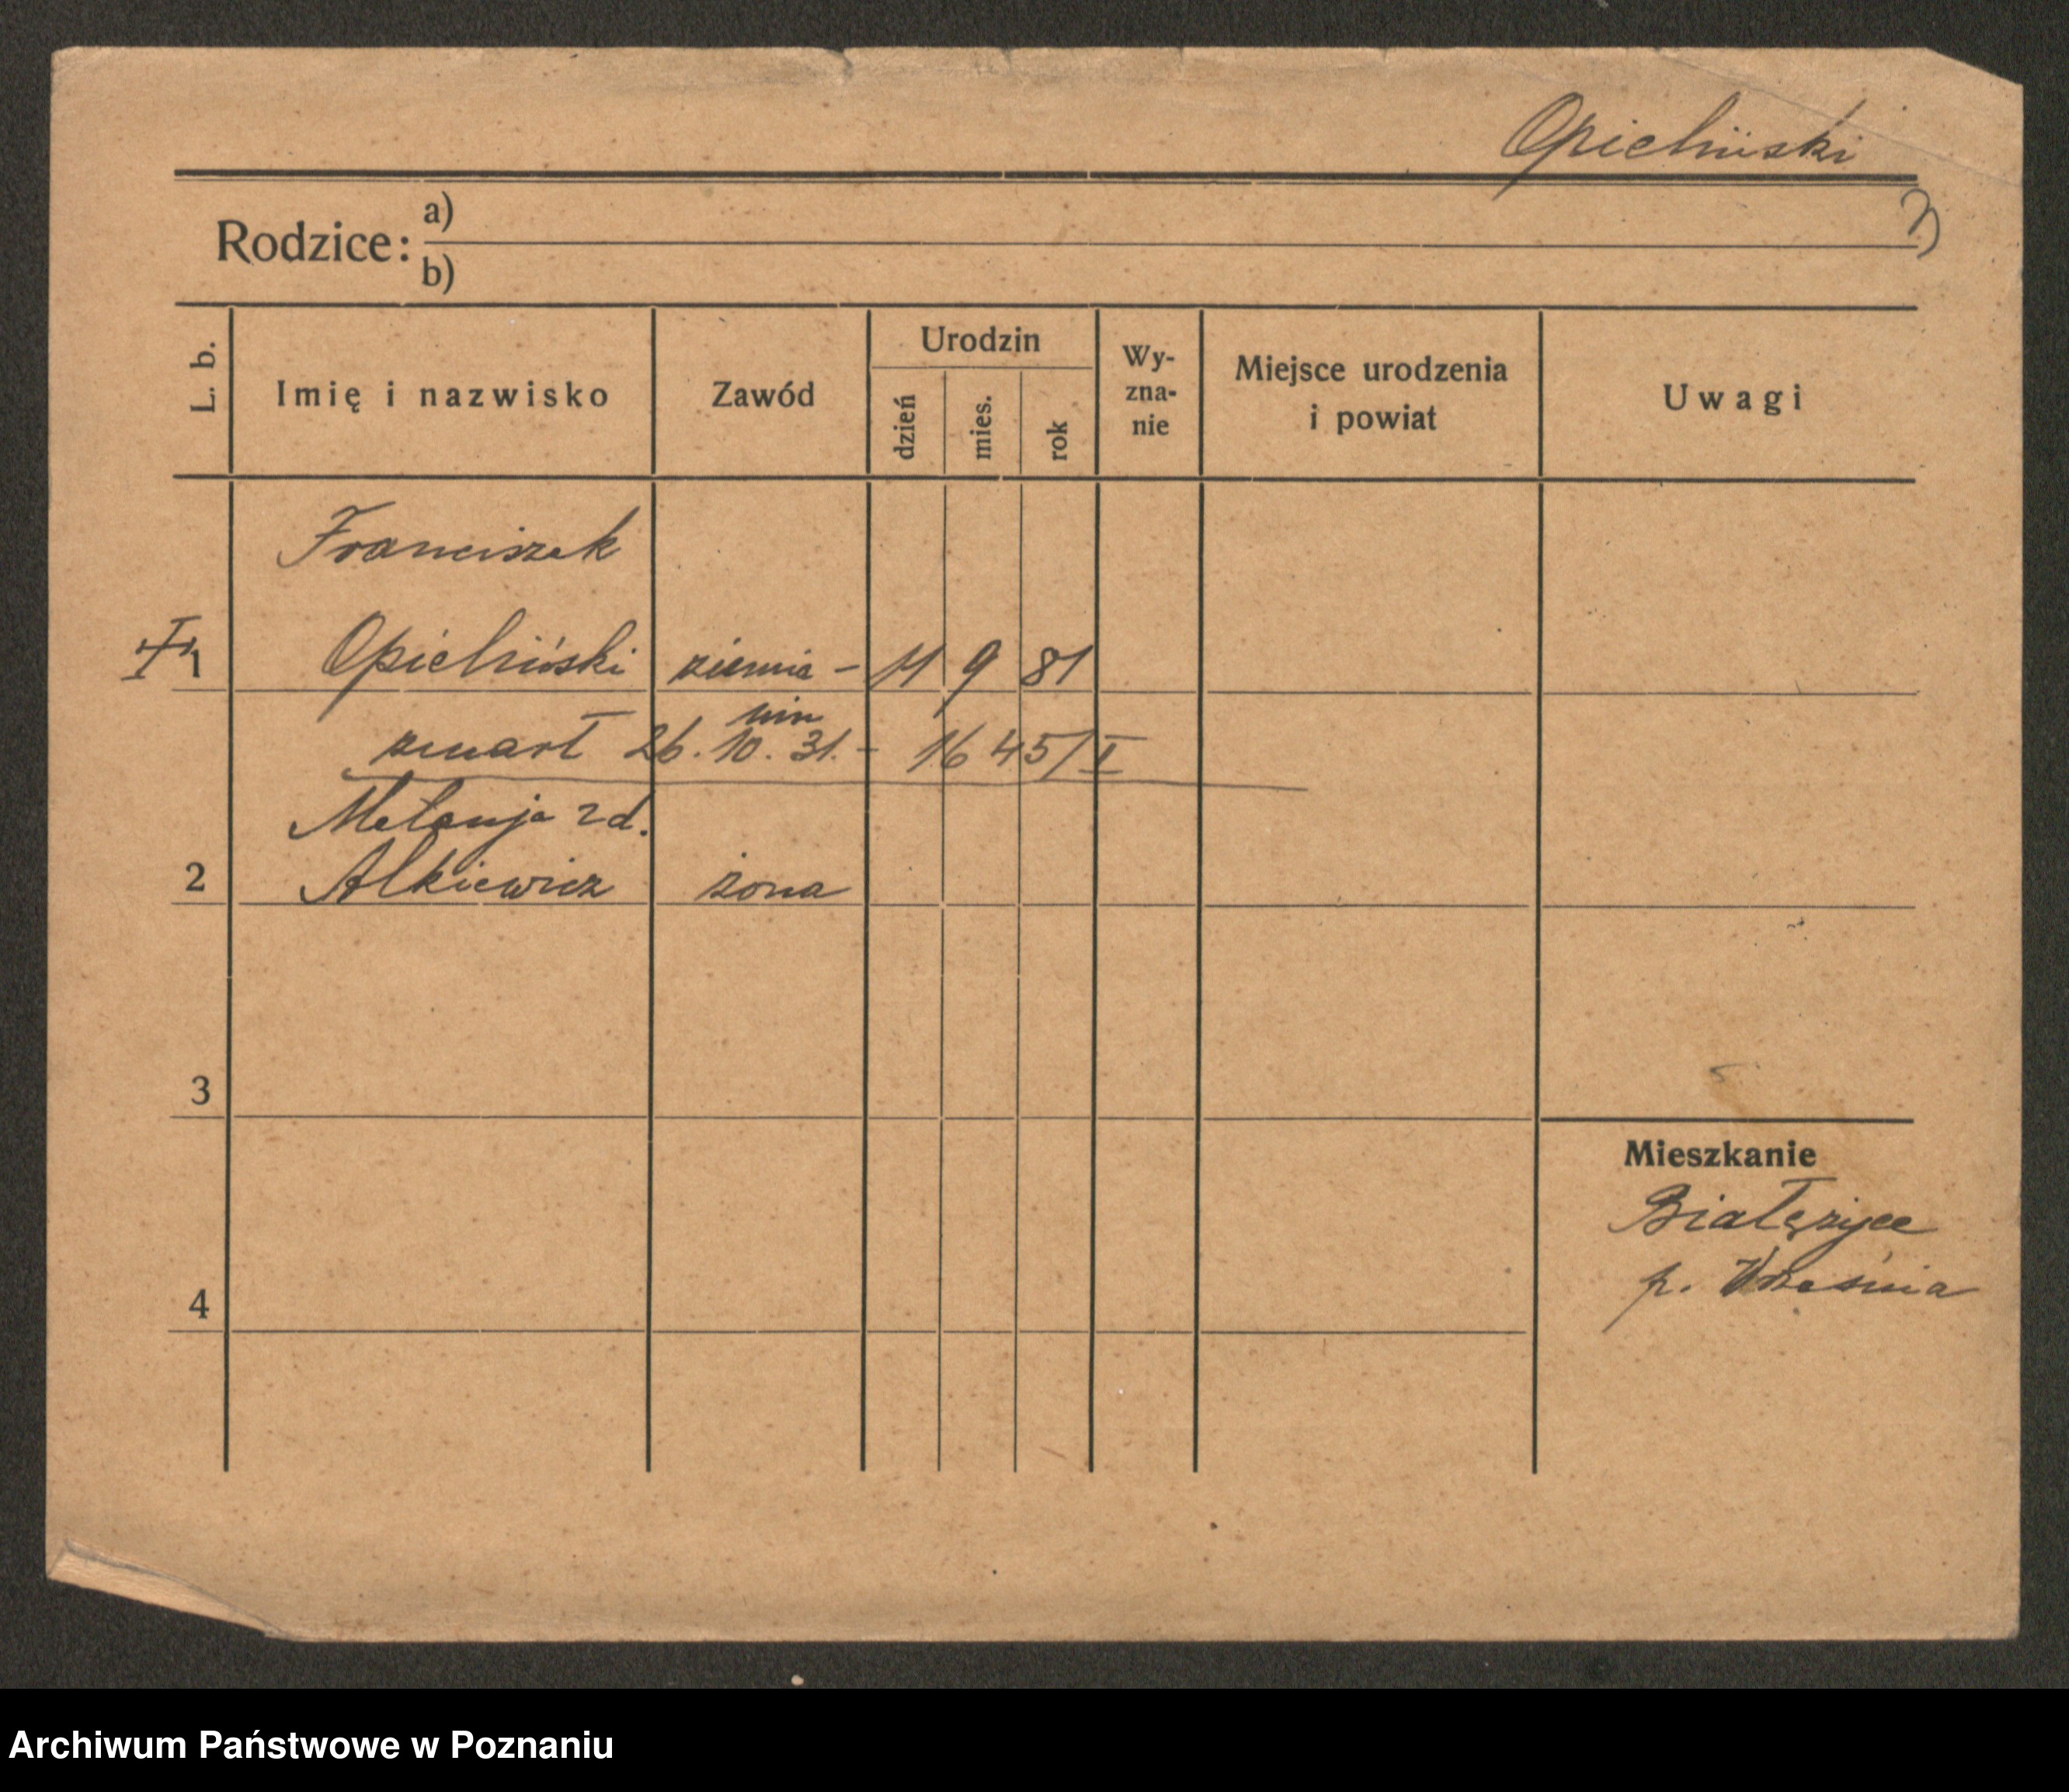 Opieliński
Rodzice: a)
b)
L. b.
Imię i nazwisko
Zawód
Urodzin
dzień
mies.
rok
Wy-
zna-
nie
Miejsce urodzenia
i powiat
Uwagi
Franciszek
1 Opieliński ziemia- 11 9 81
nin
zmarł 26. 10. 31. - 1645/I
Melanja zd.
2 Alkiewicz żona
3
Mieszkanie
Białężyce
p. Września
4
Archiwum Państwowe w Poznaniu